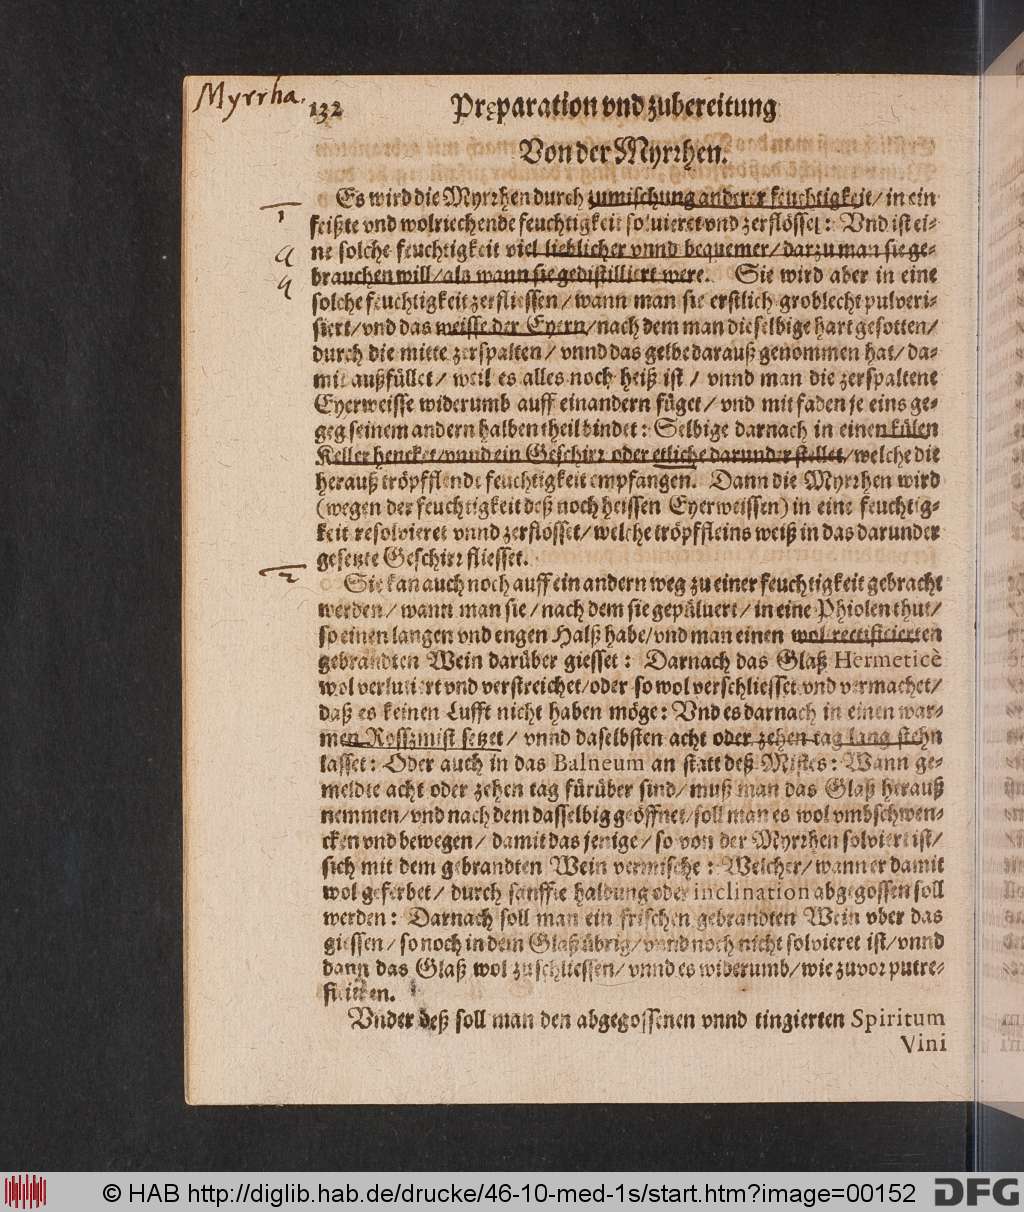 Myrrha.
132 Pręparation vnd zubereitung
Von der Myrrhen.
Es wird die Myrrhen durch zumischung anderer feuchtigkeit/ in ein
feißte vnd wolriechende feuchtigkeit soluieret vnd zerflösset: Vnd ist ei-
ne solche feuchtigkeit viel lieblicher vnnd bequemer/ darzu man sie ge-
brauchen will/ als wann sie gedistilliert were. Sie wird aber in eine
solche feuchtigkeit zerfliessen/ wann man sie erstlich groblecht pulveri-
siert/ vnd das weisse der Eyern/ nach dem man dieselbige hart gesotten/
durch die mitte zerspalten/ vnnd das gelbe darauß genommen hat/ da-
mit außfüllet/ weil es alles noch heiß ist / vnnd man die zerspaltene
Eyerweisse widerumb auff einandern füget/ vnd mit faden je eins ge-
geg seinem andern halben theil bindet: Selbige darnach in einen külen
Keller hencket/ vnnd ein Geschirr oder etliche darunder stellet/ welche die
herauß tröpfflende feuchtigkeit empfangen. Dann die Myrrhen wird
(wegen der feuchtigkeit deß noch heissen Eyerweissen) in eine feuchtig-
keit resolvieret vnnd zerflösset/ welche tröpffleins weiß in das darunder
gesetzte Geschirr fliesset.
Sie kan auch noch auff ein andern weg zu einer feuchtigkeit gebracht
werden/ wann man sie/ nach dem sie gepülvert/ in eine Phiolen thut/
so einen langen vnd engen Halß habe/ vnd man einen wol rectificierten
gebrandten Wein darüber giesset: Darnach das Glaß Hermeticè
wol verlutiert vnd verstreichet/ oder so wol verschliesset vnd vermachet/
daß es keinen Lufft nicht haben möge: Vnd es darnach in einen war-
men Rosszmist setzet/ vnnd daselbsten acht oder zehen tag lang stehn
lasset: Oder auch in das Balneum an statt deß Mistes: Wann ge-
meldte acht oder zehen tag fürüber sind/ muß man das Glaß herauß
nemmen/ vnd nach dem dasselbig geöffnet/ soll man es wol vmbschwen-
cken vnd bewegen/ damit das jenige/ so von der Myrrhen solviert ist/
sich mit dem gebrandten Wein vermische: Welcher/ wann er damit
wol geferbet/ durch sanffte haldung oder inclination abgegossen soll
werden: Darnach soll man ein frischen gebrandten Wein vber das
giessen/ so noch in dem Glaß übrig/ vnnd noch nicht solvieret ist/ vnnd
dann das Glaß wol zuschliessen/ vnnd es widerumb/ wie zuvor putre-
ficieren.
Vnder deß soll man den abgegossenen vnnd tingierten Spiritum
Vini
© HAB http://diglib.hab.de/drucke/46-10-med-1s/start.htm?image=00152
DFG